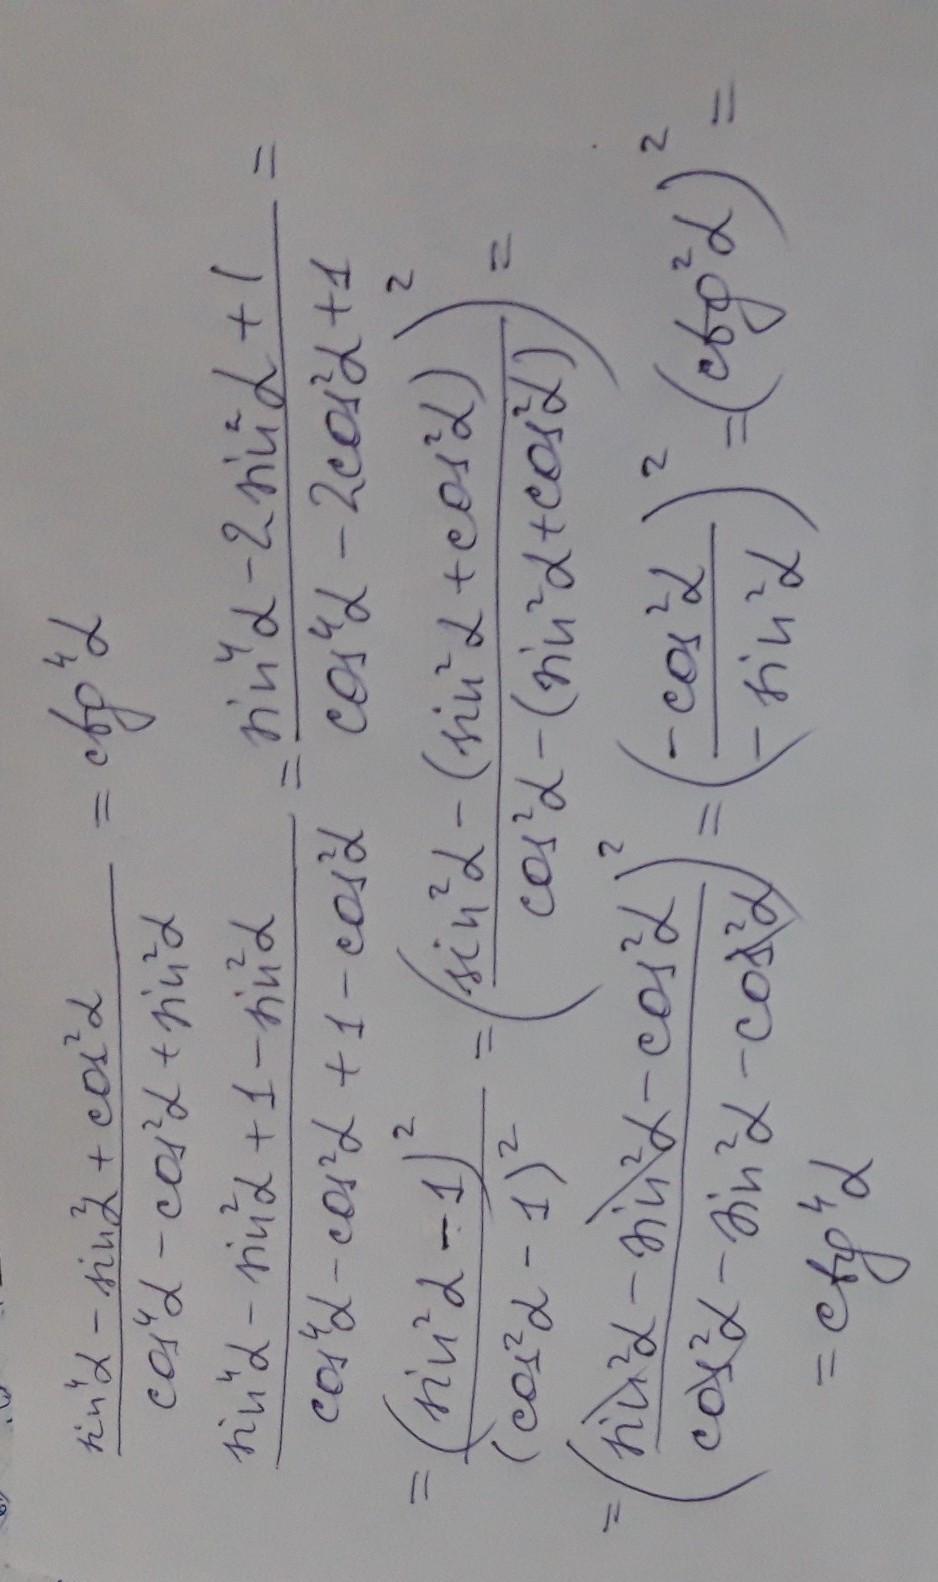 (sin⁴α - sin²α + cos²α) / (cos⁴α - cos²α + sin²α) = ctg⁴α
(sin⁴α - sin²α + 1 - sin²α) / (cos⁴α - cos²α + 1 - cos²α) = (sin⁴α - 2sin²α + 1) / (cos⁴α - 2cos²α + 1) =
= (sin²α - 1)² / (cos²α - 1)² = ((sin²α - (sin²α + cos²α)) / (cos²α - (sin²α + cos²α)))² =
= ((sin²α - sin²α - cos²α) / (cos²α - sin²α - cos²α))² = (-cos²α / -sin²α)² = (ctg²α)² =
= ctg⁴α